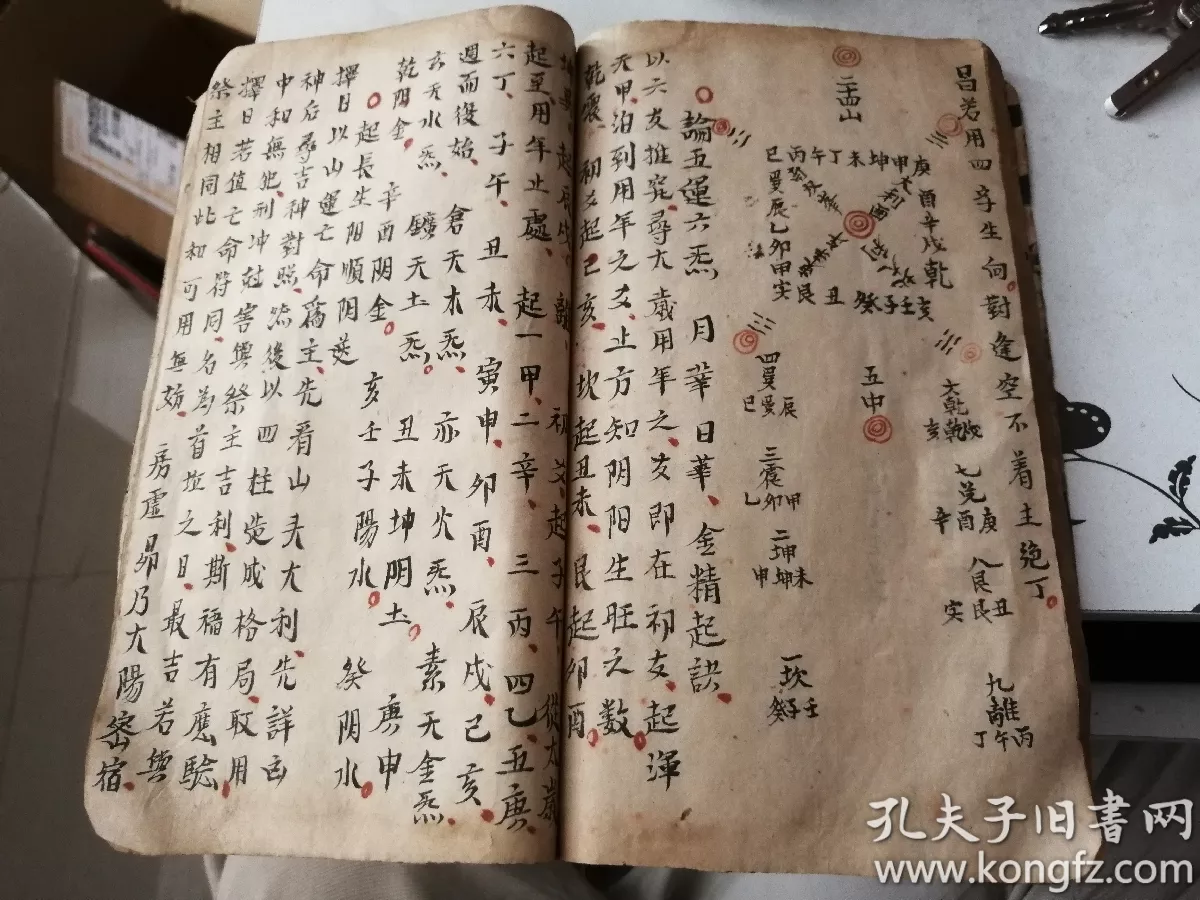 昌若用四辛生向對逢空不着主絶丁
二十四山
巳丙午丁未坤申庚
酉辛戌乾
巽辰乙卯甲
艮丑癸子壬亥
五中
四巽
巳巽辰
三震
乙卯甲
二坤
申坤未
一坎
癸子壬
六乾
亥乾戌
七兑
辛酉庚
八艮
艮丑
九離
丁午丙
論五運六炁 月華日華金精起訣
以六爻推究尋大歲用年之爻即在初爻起渾
天甲泊到用年之爻止方知阴阳生旺之数
乾震初爻起巳亥坎起丑未艮起卯酉
起辰戌 離初爻起子午從太歲
起至用年止處起一甲二辛三丙四乙五庚
六丁子午丑未寅申卯酉辰戌巳亥
週而復始倉天木炁亦天火炁素天金炁
玄天水炁鎮天土炁丑未坤阴土庚申
乾阴金辛酉阴金亥壬子陽水癸阴水
起長生阳順阴逆
擇日以山運亡命爲主先看山方大利先詳
神后尋吉神對照然後以四柱造成格局取用
中和無犯刑冲尅害與祭主吉利斯福有應驗
擇日若值亡命符同名为首坵之日最吉若與
祭主相同此和可用無妨房虛昴乃太陽密宿
孔夫子旧书网
www.kongfz.com